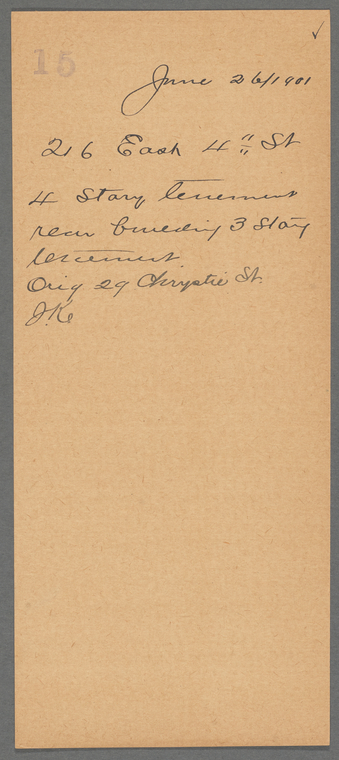 ✓
15
June 26/1901
216 East 4" St
4 Story tenement
rear building 3 Story
tenement.
Orig 29 Chrystie St.
J.K.